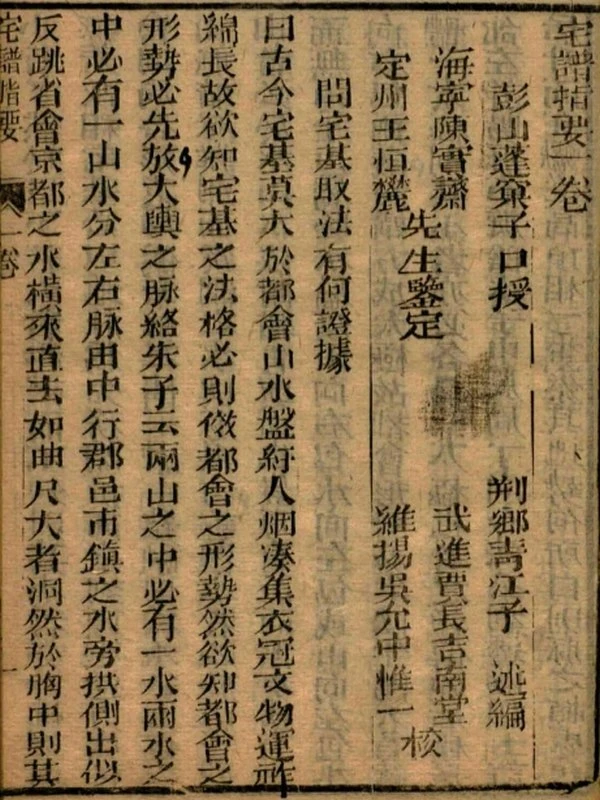 宅譜指要一卷
彭山蓬窠子口授　荆鄉靑江子　述編
海寧陳實齋　武進賈長吉南堂
先生鑒定　校
定州王恒麓　維揚吳允中惟一
問宅基取法有何證據
曰古今宅基莫大於都會山水盤紆人烟凑集衣冠文物運祚
綿長故欲知宅基之法格必則傚都會之形勢然欲知都會之
形勢必先放大輿之脉絡朱子云兩山之中必有一水兩水之
中必有一山水分左右脉由中行郡邑市鎮之水旁拱側出似
反跳省會京都之水橫來直去如曲尺大者洞然於胸中則其
宅譜指要　一卷　一